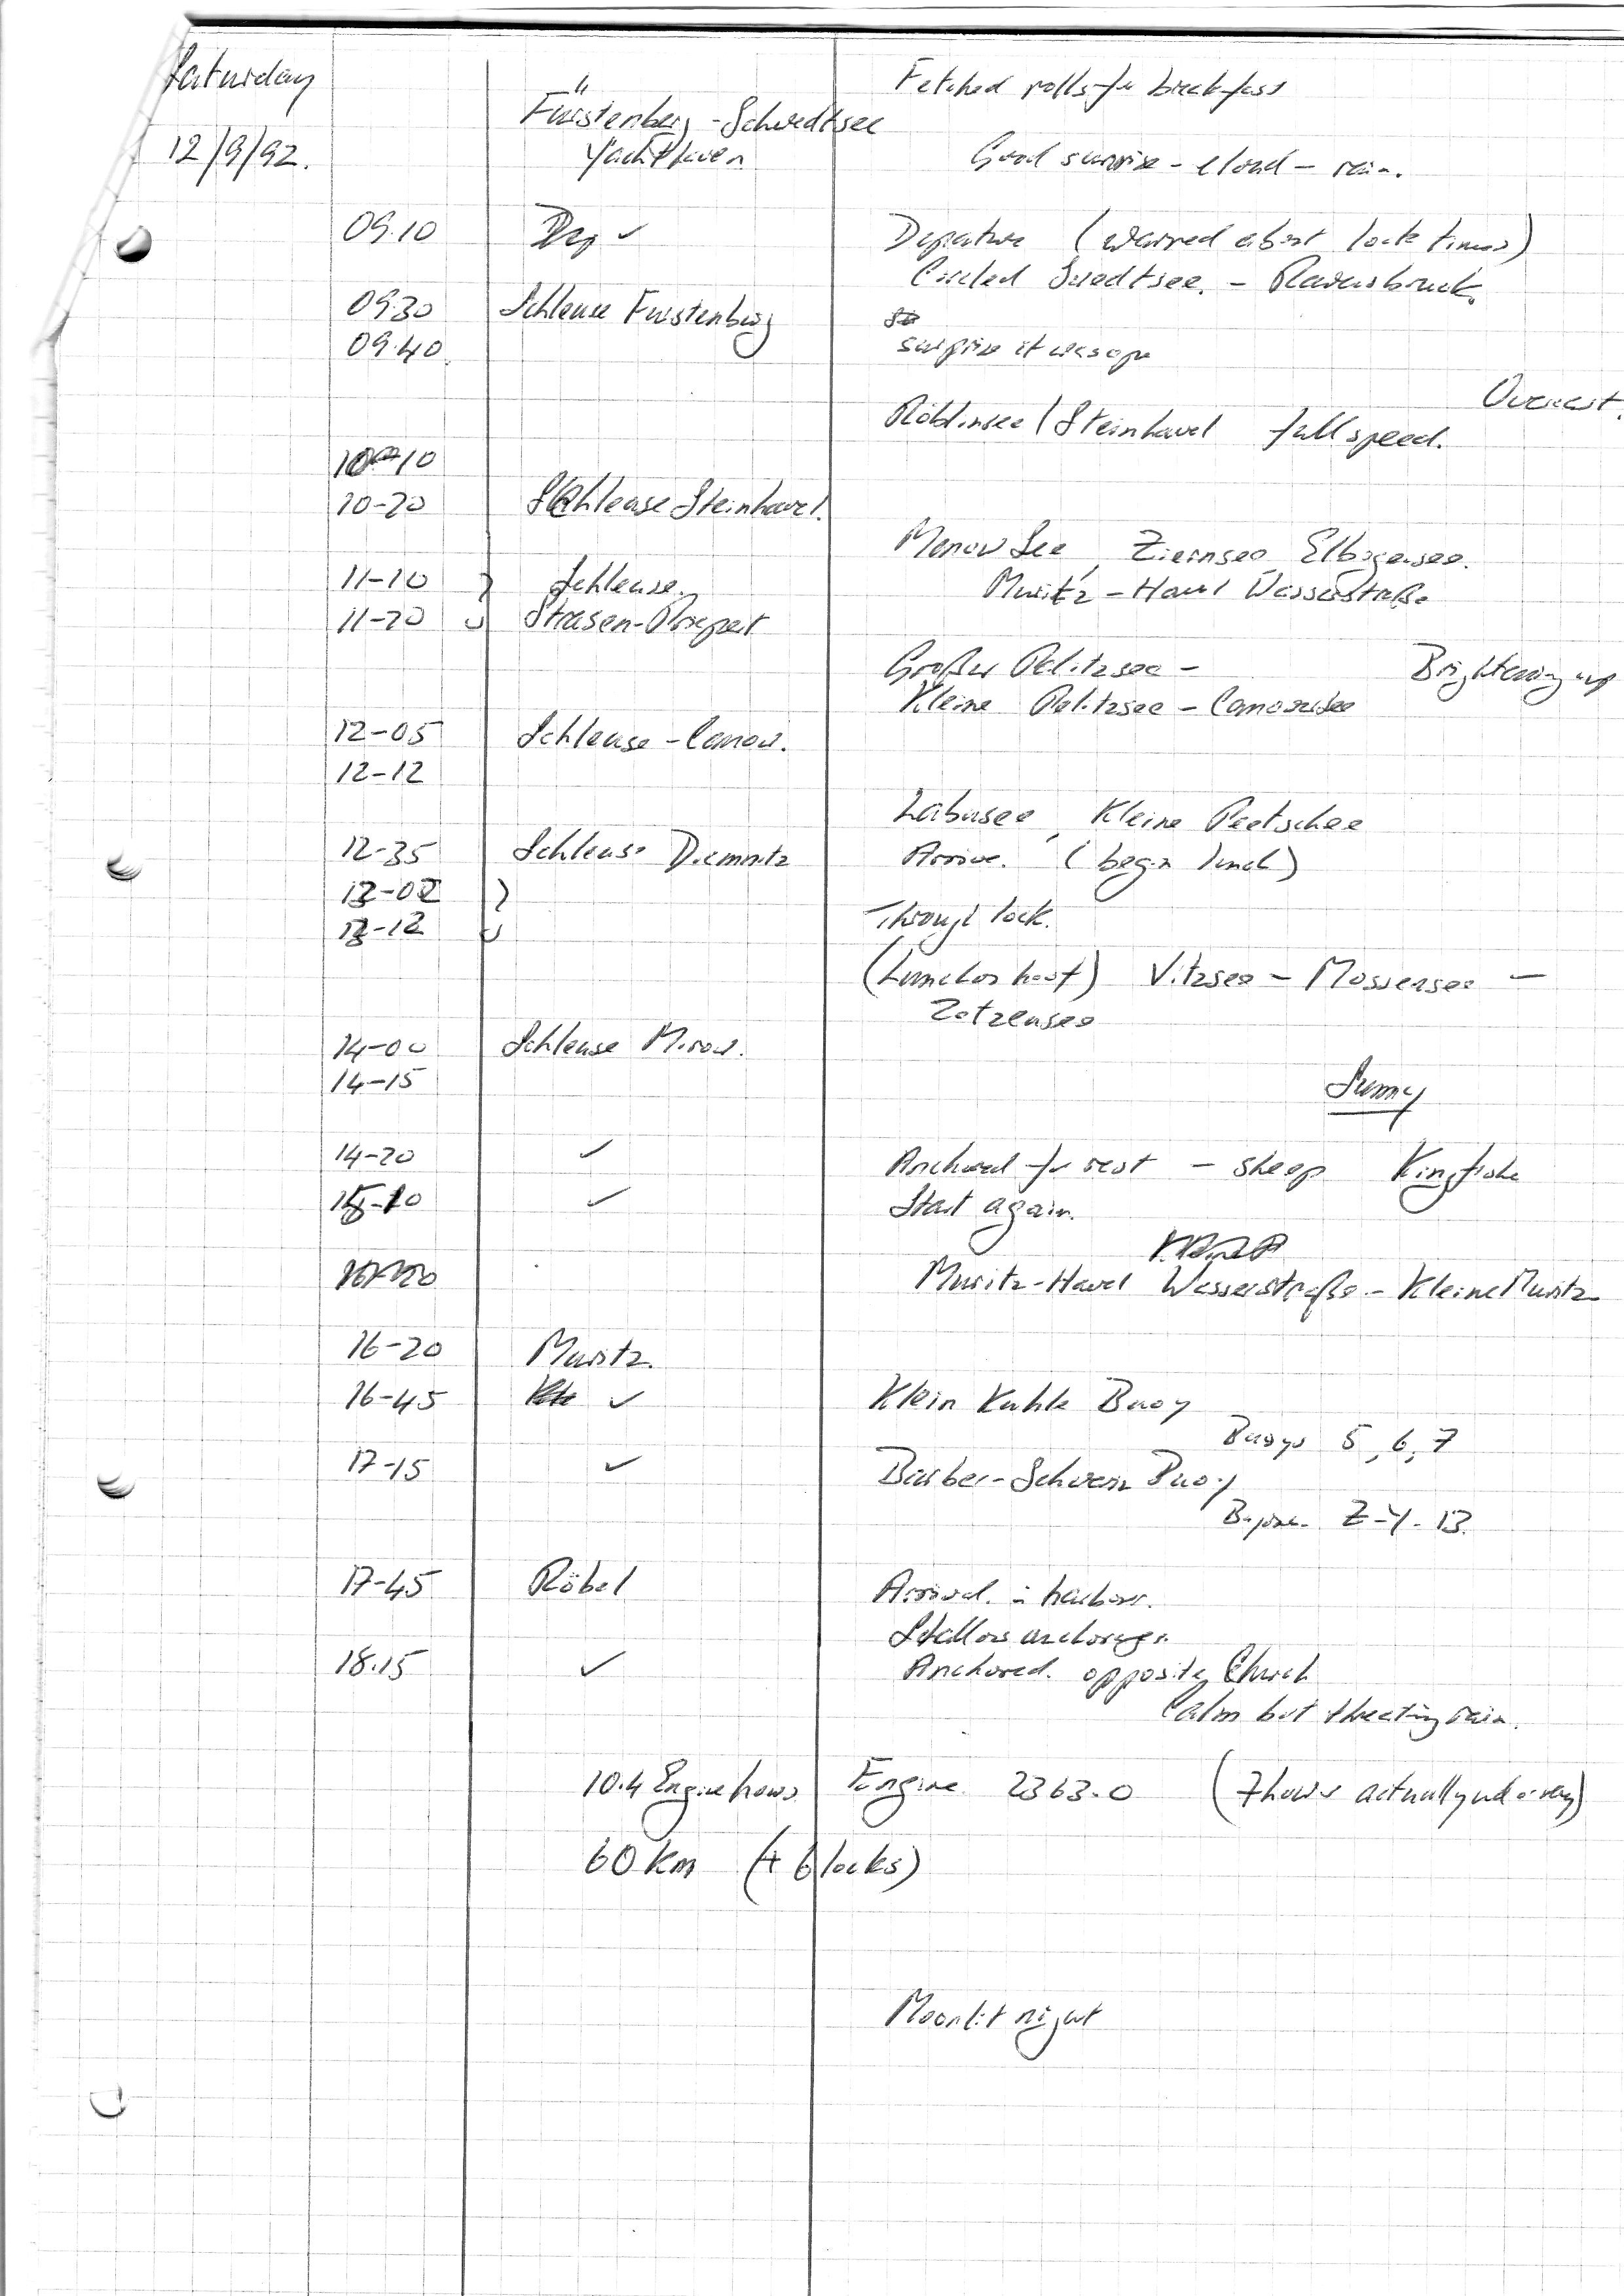 Saturday
Fetched rolls for breakfast
Fürstenberg - Schwedtsee
12/9/92. Yachthaven Good sunrise - cloud - rain.
09.10 Dep ✓ Departure (warned about lock times)
Circled Swedtsee. - Ravensbruck.
09.30 Schleuse Furstenberg
09.40 surprise it was open
Overcast.
Röblinsee / Steinhavel full speed.
10-10
10-20 Schleuse Steinhavel.
Menow See, Ziernsee, Elbogensee.
11-10 } Schleuse. Muritz - Havel Wasserstraße
11-20 Strasen-Priepert
Großer Pelitzsee - Brightening up
Kleine Pelitzsee - Canowsee
12-05 Schleuse - Canow.
12-12
Labussee, Kleine Peetschsee
12-35 Schleuse Diemnitz Arrive. (begin lunch)
13-02 }
13-12 Through lock.
(Lunch on hoof) Vitzsee - Mossensee -
Zotzensee
14-00 Schleuse Mirow.
14-15 Sunny
14-20 ✓ Anchored for rest - sheep Kingfisher
15-10 ✓ Start again.
Muritz-Havel Wasserstraße - Kleine Muritz
16-20 Muritz.
16-45 ✓ Klein Kuhle Buoy
Buoys 5, 6, 7
17-15 ✓ Buoy
Z-Y-13.
17-45 Röbel Arrived in harbour.
Shallow anchorage.
18.15 ✓ Anchored. opposite Church
Calm but rain.
10.4 Engine hours Engine 2363.0 (7 hours actually under way)
60 km (+ 6 locks)
Moonlit night